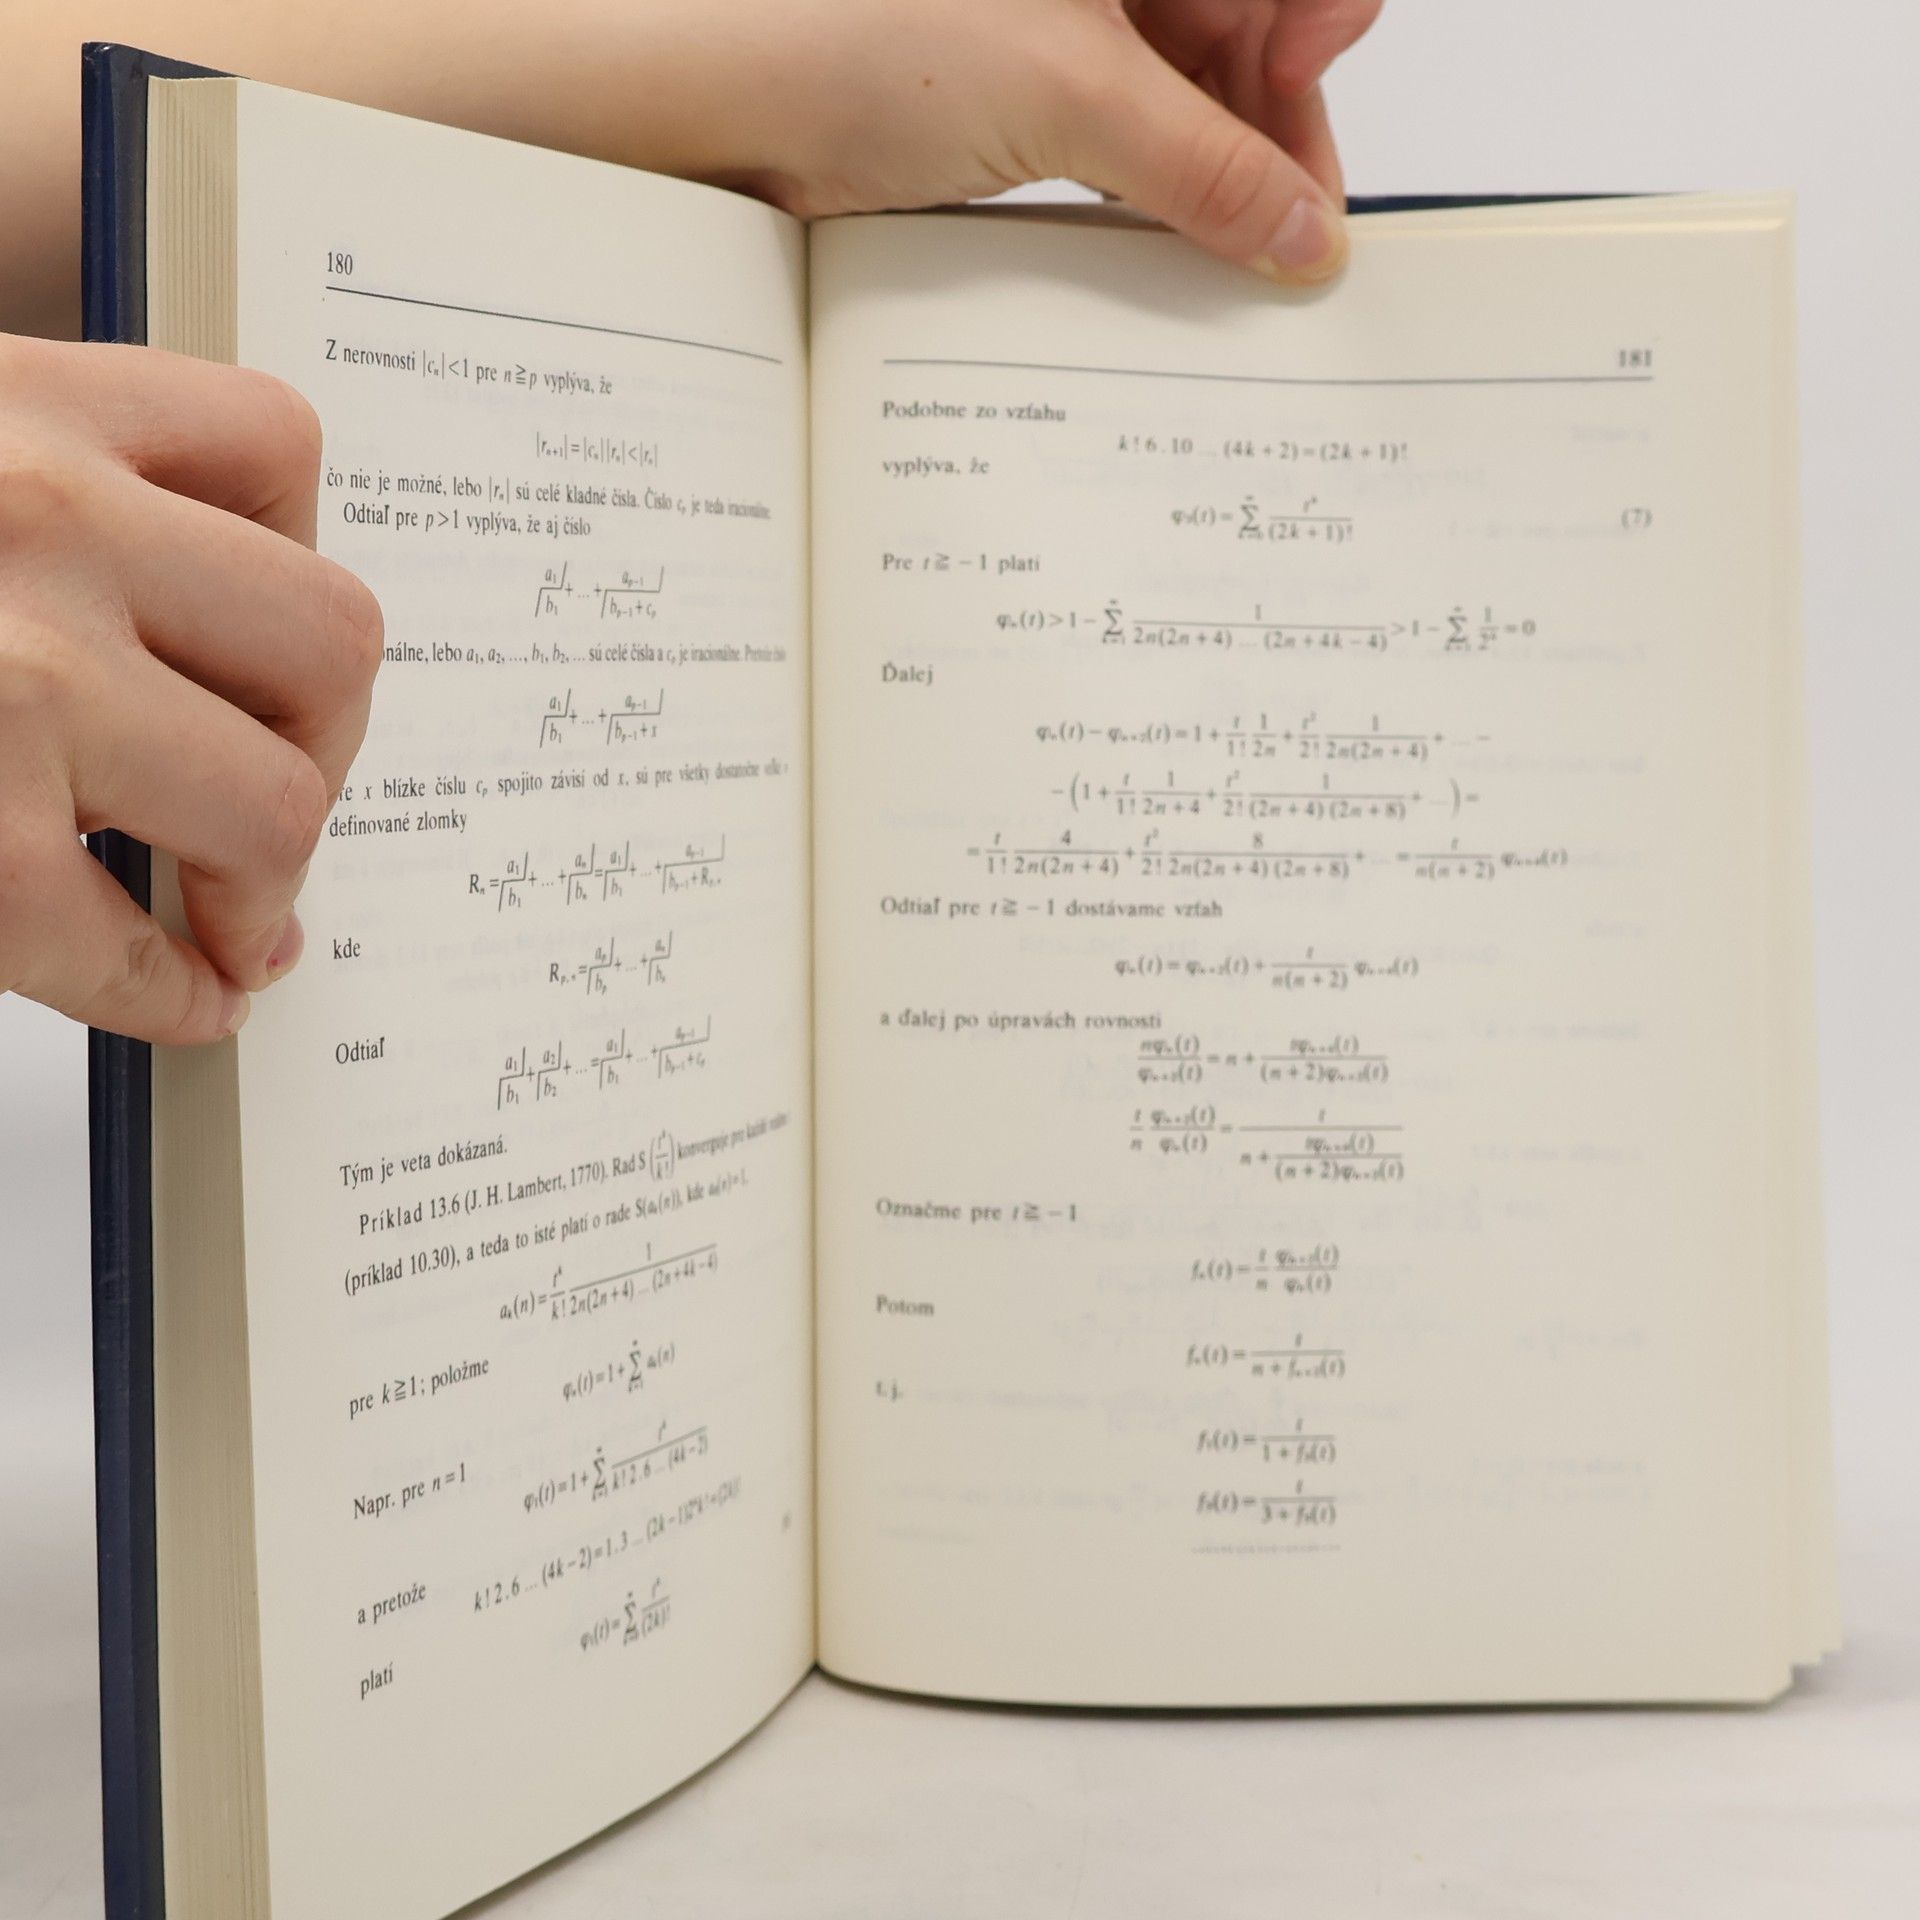 180
Z nerovnosti |cₙ|<1 pre n≧p vyplýva, že
|rₙ₊₁|=|cₙ||rₙ|<|rₙ|
čo nie je možné, lebo |rₙ| sú celé kladné čísla. Číslo cₚ je teda iracionálne.
Odtiaľ pre p>1 vyplýva, že aj číslo
a₁⌋/⌈b₁ + ... + aₚ₋₁⌋/⌈bₚ₋₁+cₚ
lebo a₁, a₂, ..., b₁, b₂, ... sú celé čísla a cₚ je iracionálne. Pretože
a₁⌋/⌈b₁ + ... + aₚ₋₁⌋/⌈bₚ₋₁+x
x blízke číslu cₚ spojito závisí od x, sú pre všetky dostatočne
definované zlomky
Rₙ = a₁⌋/⌈b₁ + ... + aₙ⌋/⌈bₙ = a₁⌋/⌈b₁ + ... + aₚ₋₁⌋/⌈bₚ₋₁+Rₚ,ₙ
kde
Rₚ,ₙ = aₚ⌋/⌈bₚ + ... + aₙ⌋/⌈bₙ
Odtiaľ
a₁⌋/⌈b₁ + a₂⌋/⌈b₂ + ... = a₁⌋/⌈b₁ + ... + aₚ₋₁⌋/⌈bₚ₋₁+cₚ
Tým je veta dokázaná.
Príklad 13.6 (J. H. Lambert, 1770). Rad S(tᵏ/k!) konverguje pre každé
(príklad 10.30), a teda to isté platí o rade S(aₖ(n)), kde a₀(n)=1,
aₖ(n) = tᵏ/k! 1/(2n(2n+4) ... (2n+4k−4))
pre k≧1; položme
φₙ(t)=1+∑ₖ₌₁^∞ aₖ(n)
Napr. pre n=1
φ₁(t)=1+∑ₖ₌₁^∞ tᵏ/(k! 2.6 ... (4k−2))
a pretože
k! 2.6 ... (4k−2)=1.3 ... (2k−1)2ᵏk!=(2k)!
platí
φ₁(t)=∑ₖ₌₀^∞ tᵏ/(2k)!
181
Podobne zo vzťahu
k! 6.10 ... (4k+2)=(2k+1)!
vyplýva, že
φ₃(t)=∑ₖ₌₀^∞ tᵏ/(2k+1)! (7)
Pre t≧−1 platí
φₙ(t)>1−∑ₖ₌₁^∞ 1/(2n(2n+4) ... (2n+4k−4))>1−∑ₖ₌₁^∞ 1/2ᵏ=0
Ďalej
φₙ(t)−φₙ₊₂(t)=1+t/1! 1/2n+t²/2! 1/(2n(2n+4))+ ... −
−(1+t/1! 1/(2n+4)+t²/2! 1/((2n+4)(2n+8))+ ...)=
=t/1! 4/(2n(2n+4))+t²/2! 8/(2n(2n+4)(2n+8))+ ... =t/(n(n+2)) φₙ₊₄(t)
Odtiaľ pre t≧−1 dostávame vzťah
φₙ(t)=φₙ₊₂(t)+t/(n(n+2)) φₙ₊₄(t)
a ďalej po úpravách rovnosti
nφₙ(t)/φₙ₊₂(t)=n+tφₙ₊₄(t)/((n+2)φₙ₊₂(t))
t/n φₙ₊₂(t)/φₙ(t)=t/(n+tφₙ₊₄(t)/((n+2)φₙ₊₂(t)))
Označme pre t≧−1
fₙ(t)=t/n φₙ₊₂(t)/φₙ(t)
Potom
fₙ(t)=t/(n+fₙ₊₂(t))
t.j.
f₁(t)=t/(1+f₃(t))
f₃(t)=t/(3+f₅(t))
........................